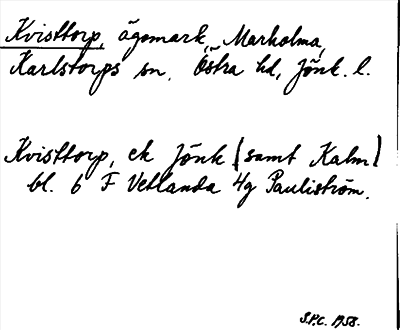 Kvisttorp, ägomark, Marholma,
Karlstorps sn, Östra hd, Jönk. l.
Kvisttorp, ek Jönk (samt Kalm)
bl. 6 F Vetlanda 4g Pauliström.
S.P.C. 1958.